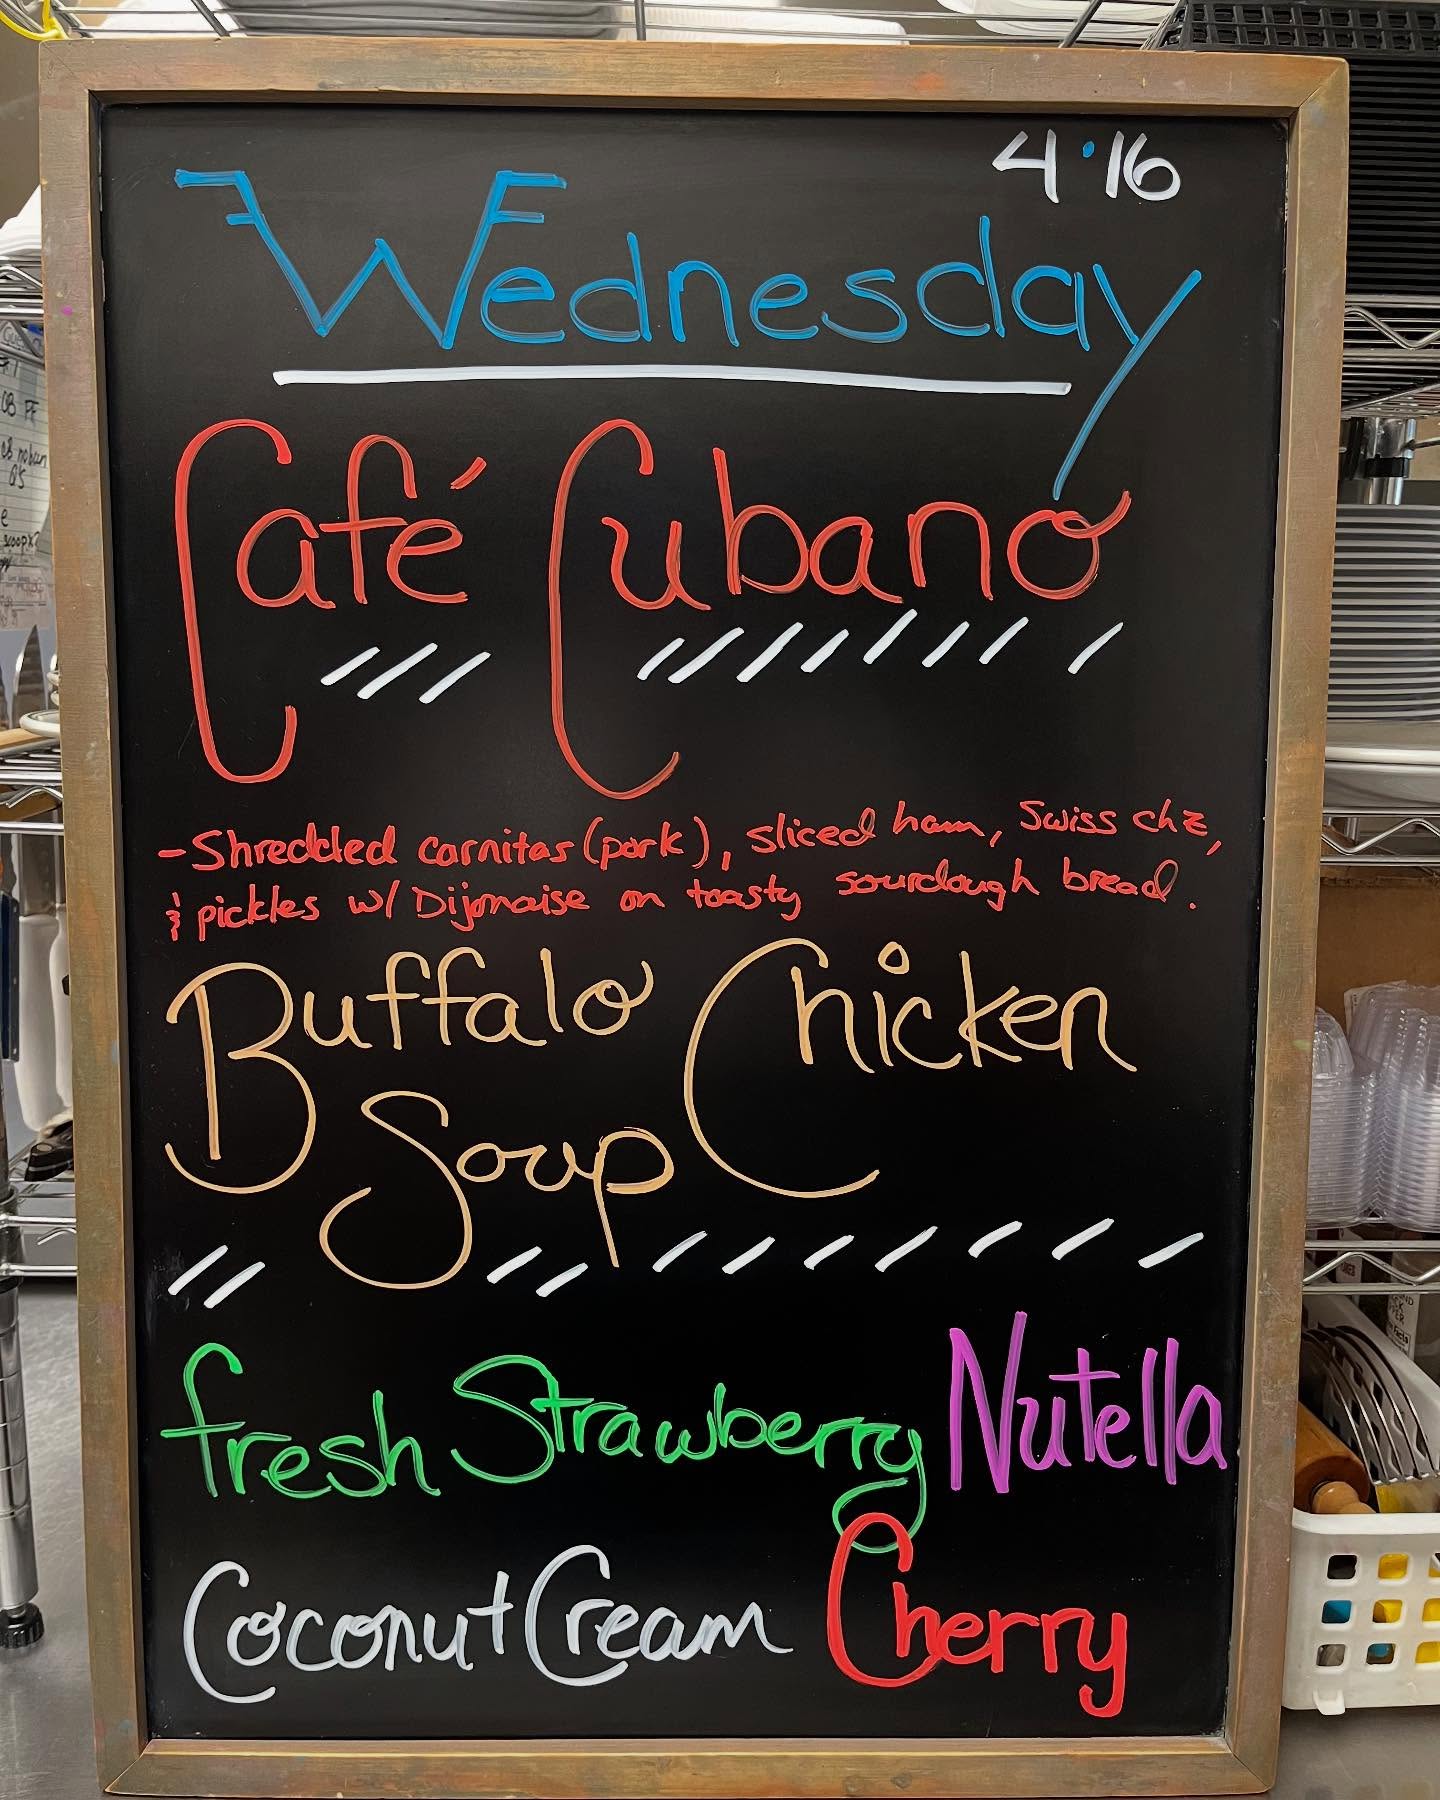 4·16
Wednesday
Café Cubano
-Shredded carnitas (pork), sliced ham, Swiss chz,
& pickles w/ Dijonaise on toasty sourdough bread.
Buffalo Chicken
Soup
fresh Strawberry Nutella
Coconut Cream Cherry